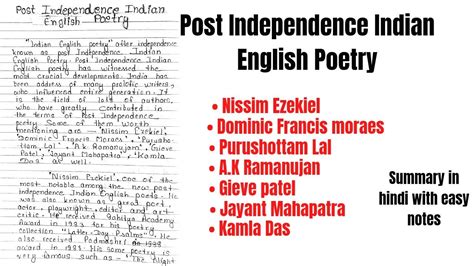 Post Independence Indian
English Poetry
"Indian English poetry" after independence
known as post Independence Indian
English Poetry. Post Independence Indian
English poetry has witnessed the
most crucial developments. India has
been address of many prolific writers,
who influenced entire generation. It
is the field of lots of authors,
who have greatly contributed in
the terms of Post Independence
poetry. Some of them worth
mentioning are — Nissim Ezekiel,
Dominic Francis Moraes, "Purushottam
Lal", "A.K Ramanujan", Gieve
Patel, "Jayant Mahapatra", "Kamla
Das" as well.
"Nissim Ezekiel", one of the
most notable among the new post
independence Indian English poets. He
was also known as great poet,
actor, playwright, editor and art
critic. He received Sahitya Academy
Award in 1983 for his poetry
collection "Latter-Day Psalms". He
also received Padmashri in 1988
award in 1988. His some poetry is
very famous such as - "The Night
Post Independence Indian
English Poetry
• Nissim Ezekiel
• Dominic Francis moraes
• Purushottam Lal
• A.K Ramanujan
• Gieve patel
• Jayant Mahapatra
• Kamla Das
Summary in
hindi with easy
notes